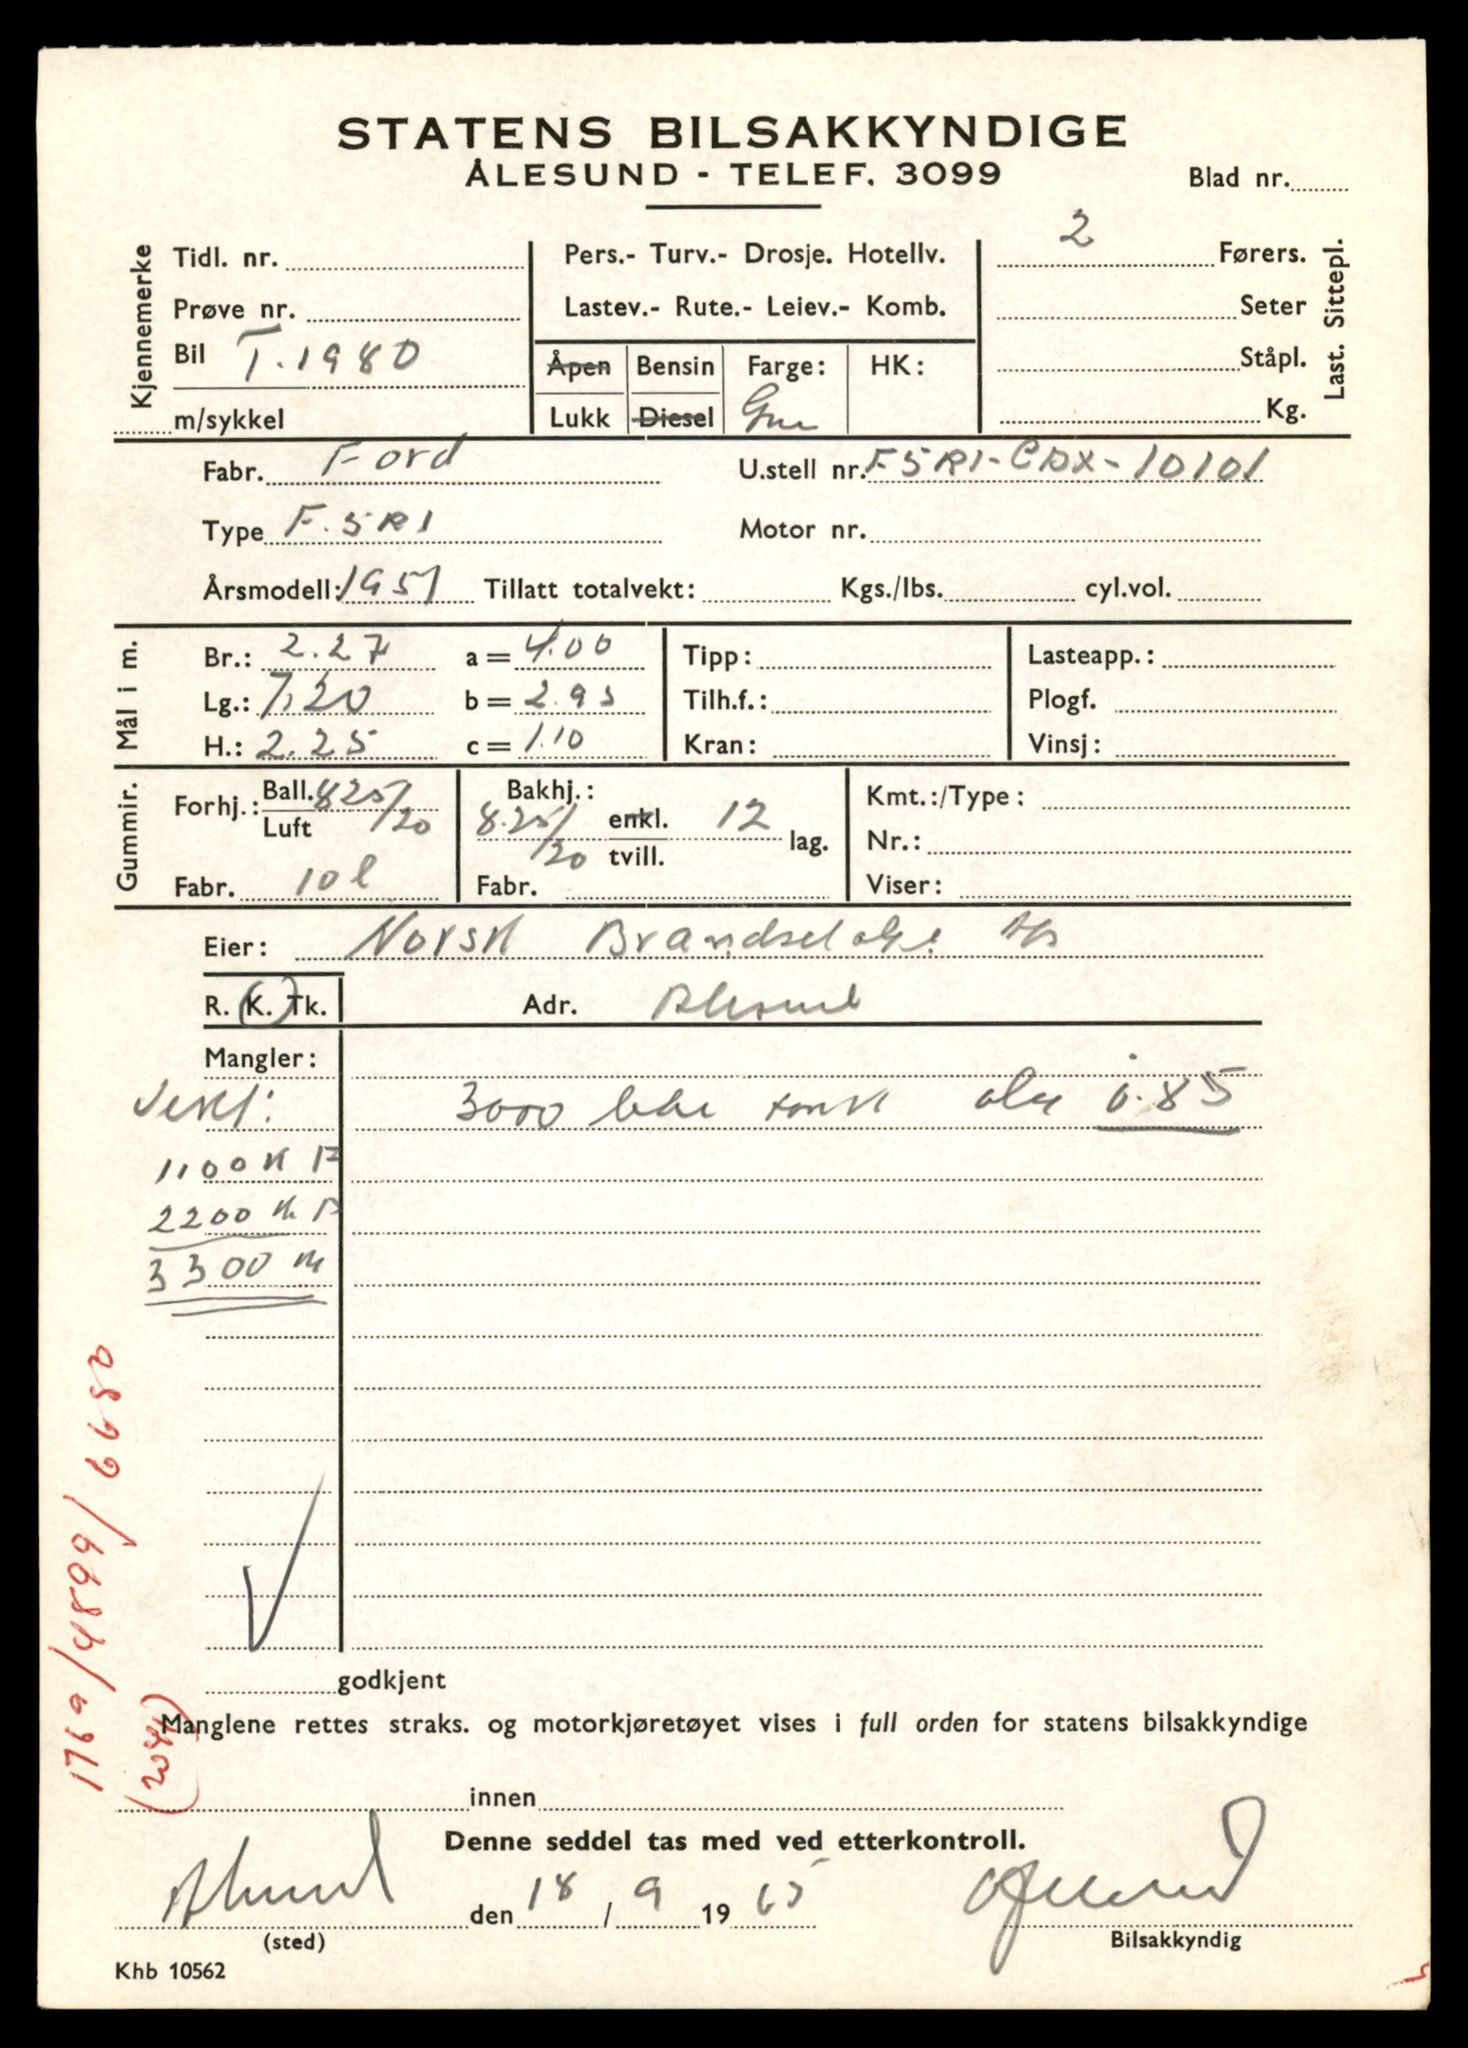 STATENS BILSAKKYNDIGE
ÅLESUND - TELEF. 3099
Blad nr.
Kjennemerke
Tidl. nr.
Prøve nr.
Bil T.1980
m/sykkel
Pers.- Turv.- Drosje. Hotellv.
Lastev.- Rute.- Leiev.- Komb.
Åpen Bensin Farge: HK:
Lukk Diesel
2 Førers.
Seter
Ståpl.
Kg.
Last. Sittepl.
Fabr. Ford U.stell nr. F5R1-CDX-10101
Type F.5R1 Motor nr.
Årsmodell: 1951 Tillatt totalvekt: Kgs./lbs. cyl.vol.
Mål i m.
Br.: 2.27 a = 4.00 Tipp: Lasteapp.:
Lg.: 7.20 b = 2.95 Tilh.f.: Plogf.
H.: 2.25 c = 1.10 Kran: Vinsj:
Gummir.
Forhj.: Ball. 825/20 Luft
Bakhj.: 8.25/20 enkl. tvill. 12 lag.
Kmt.:/Type:
Nr.:
Fabr. 10 l Fabr. Viser:
Eier: Norsk Brændselolje A/S
R. (K.) Tk. Adr. Ålesund
Mangler:
Vekt: 3000 liter tank 0.85
1100 K F
2200 K B
3300 K
godkjent
Manglene rettes straks. og motorkjøretøyet vises i full orden for statens bilsakkyndige
innen
Denne seddel tas med ved etterkontroll.
Ålesund den 18 / 9 19 65
(sted) Bilsakkyndig
Khb 10562
1769/4899/6680